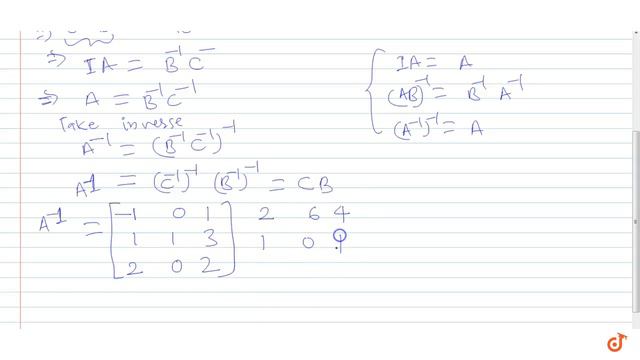 ⇒ IA = B⁻¹ C⁻
⇒ A = B⁻¹ C⁻¹
Take inverse
A⁻¹ = (B⁻¹ C⁻¹)⁻¹
A⁻¹ = (C⁻¹)⁻¹ (B⁻¹)⁻¹ = CB
A⁻¹ = [-1 0 1] 2 6 4
1 1 3 1 0 1
2 0 2
IA = A
(AB)⁻¹ = B⁻¹ A⁻¹
(A⁻¹)⁻¹ = A
doubtnut